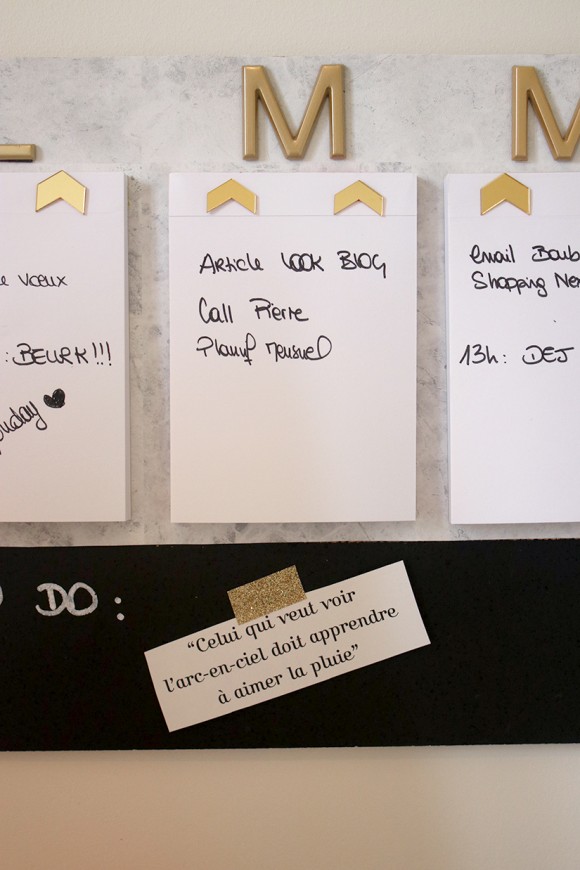 L M M
e vœux
: BEURK!!!
onday
Article look Blog
Call Pierre
Planif Mensuel
email Boub
Shopping Ne
13h: DEJ
O DO:
“Celui qui veut voir
l’arc-en-ciel doit apprendre
à aimer la pluie”